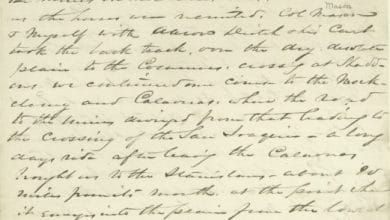 Mason
as the horses were recruited. Col Mason
& Myself with Aaron & his Cart
took the back track, over the dry, desolate
plain to the Cosumnes, cross'g at
we continued our course to the Mock-
elumny and Calaveras, where the road
to the mines diverged from that leading to
the crossing of the San Joaquin – a long
days ride after leaving the Calaveras
brought us to the Stanislaus – about 90
miles from its mouth. at the point where
it emerges into the plains from the lowest